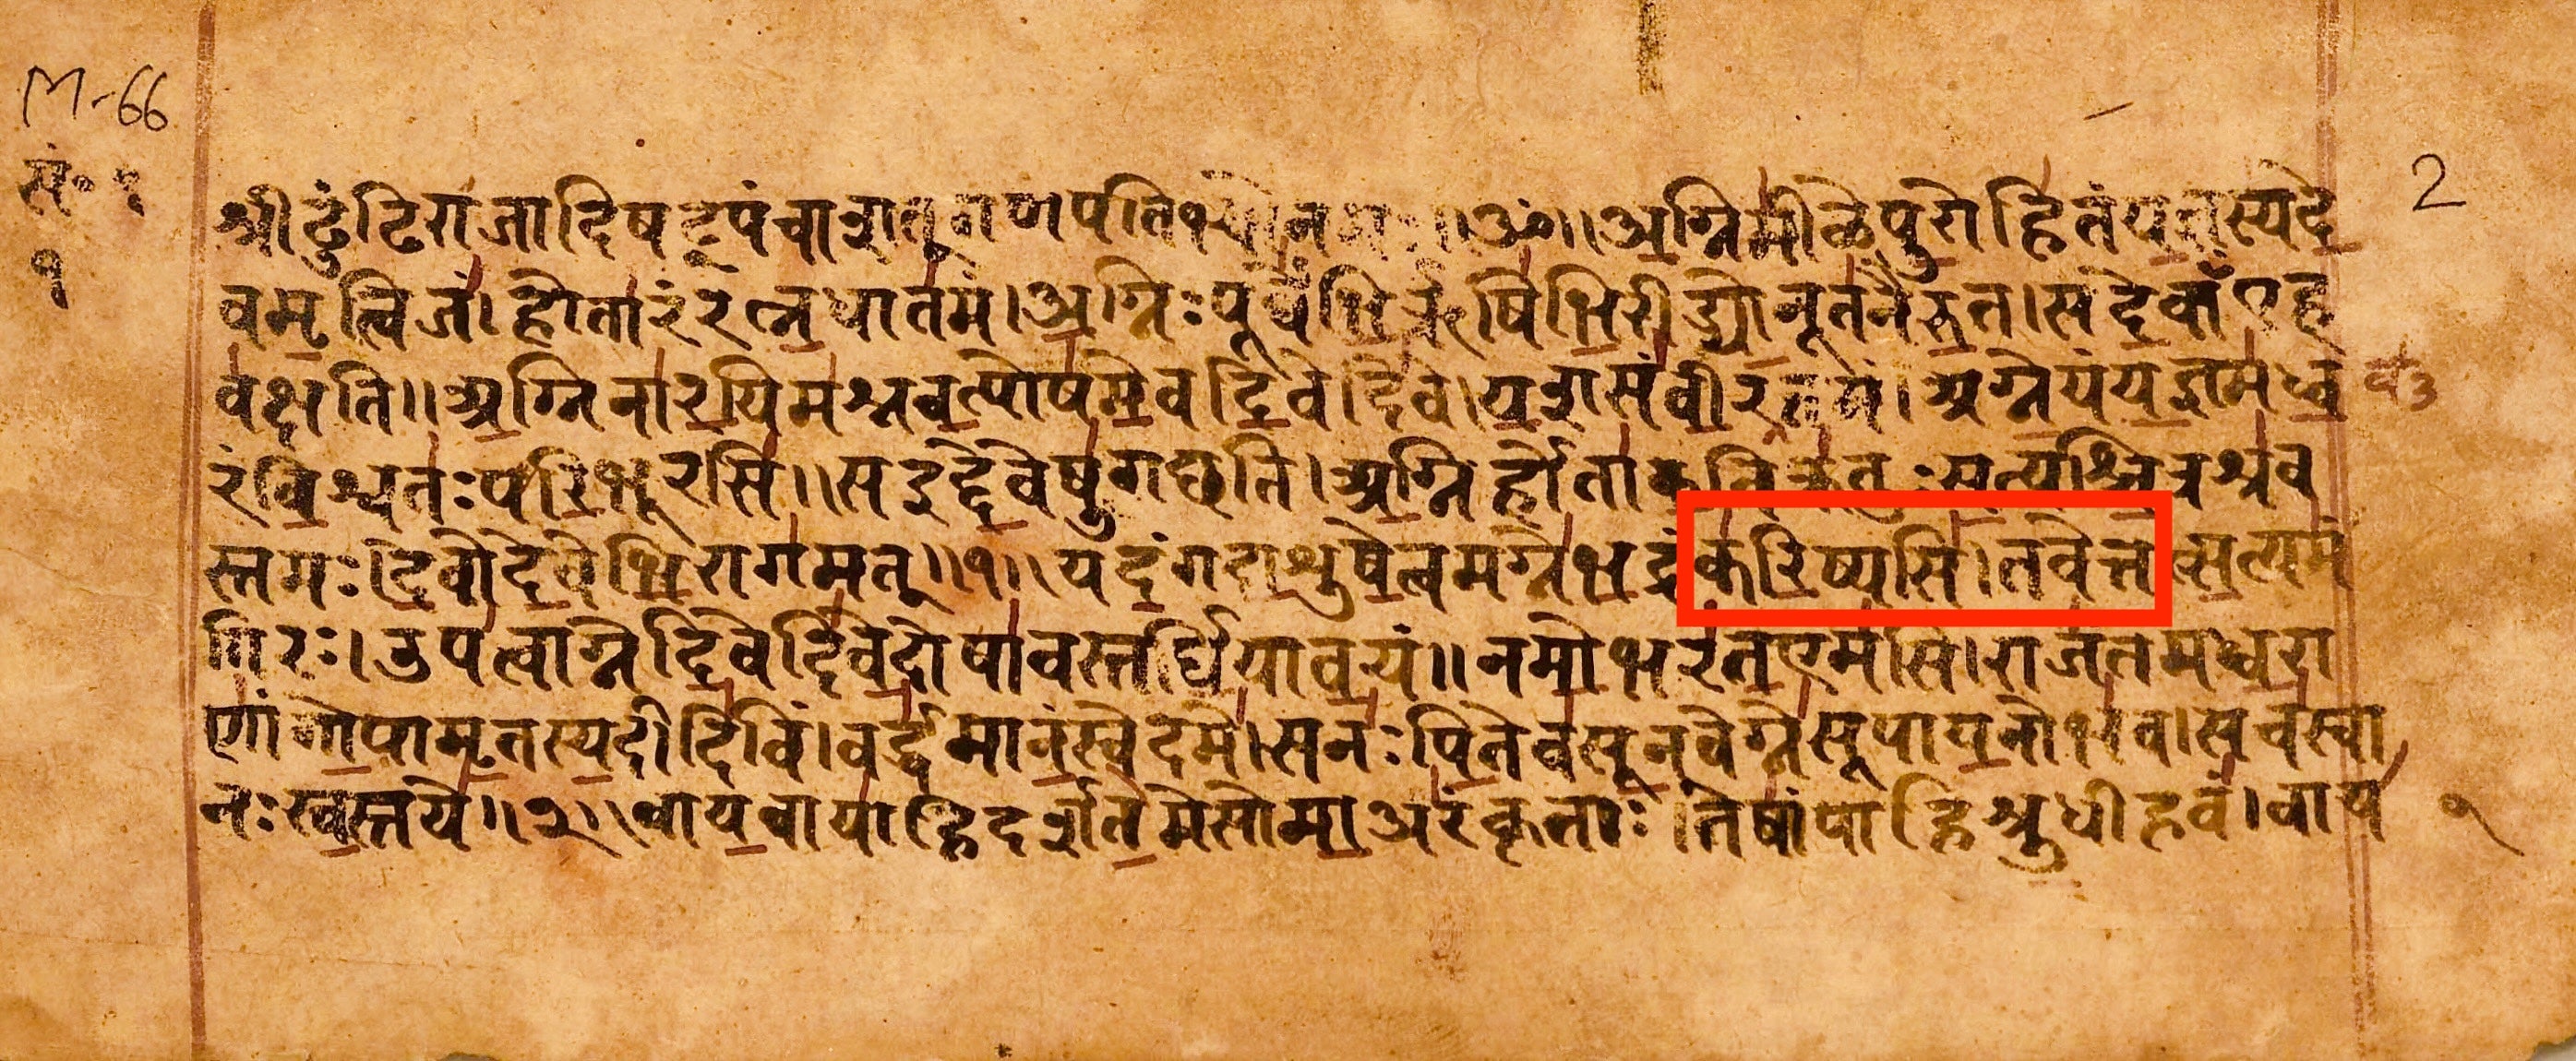 M-66
सं॰ १
2
श्रीढुंढिराजादिषट्पंचाशत्गणपतिभ्योनमः॥ॐ॥अग्निमीळेपुरोहितंयज्ञस्यदे
१
वमृत्विजं।होतारंरत्नधातमं।अग्निःपूर्वेभिर्ऋषिभिरीड्योनूतनैरुत।सदेवाँएह
वक्षति॥अग्निनारयिमश्नवत्पोषमेवदिवेदिवे।यशसंवीरवत्तमं।अग्नेयंयज्ञमध्व
रंविश्वतःपरिभूरसि॥सइद्देवेषुगछति।अग्निर्होताकविक्रतुःसत्यश्चित्रश्रव
स्तमः।देवोदेवेभिरागमत्॥१॥यदंगदाशुषेत्वमग्नेभद्रंकरिष्यसि।तवेत्तत्सत्यमं
गिरः।उपत्वाग्नेदिवेदिवेदोषावस्तर्धियावयं॥नमोभरंतएमसि।राजंतमध्वरा
णांगोपामृतस्यदीदिविं।वर्द्धमानंस्वेदमे।सनःपितेवसूनवेग्नेसूपायनोभव।सचस्वा
नःस्वस्तये॥२॥वायवायाहिदर्शतमेसोमाअरंकृताः।तेषांपाहिश्रुधीहवं।वाय
१